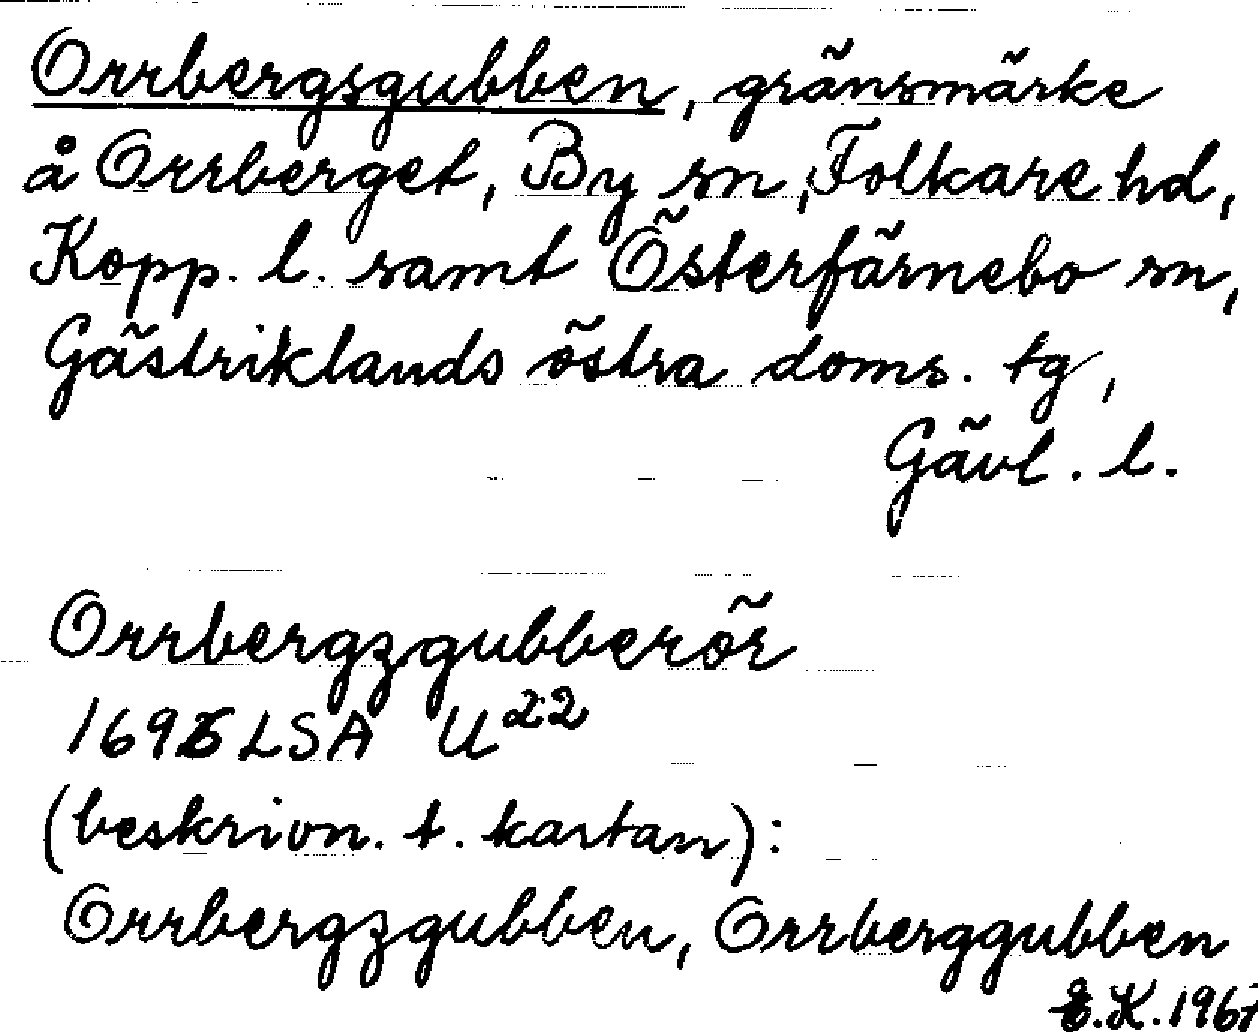 Orrbergsgubben, gränsmärke
å Orrberget, By sn, Folkare hd,
Kopp. l. samt Österfärnebo sn,
Gästriklands östra doms. tg,
Gävl. l.
Orrbergzgubberör
1696 LSA U22
(beskrivn. t. kartan):
Orrbergzgubben, Orrberggubben
E.K. 1967